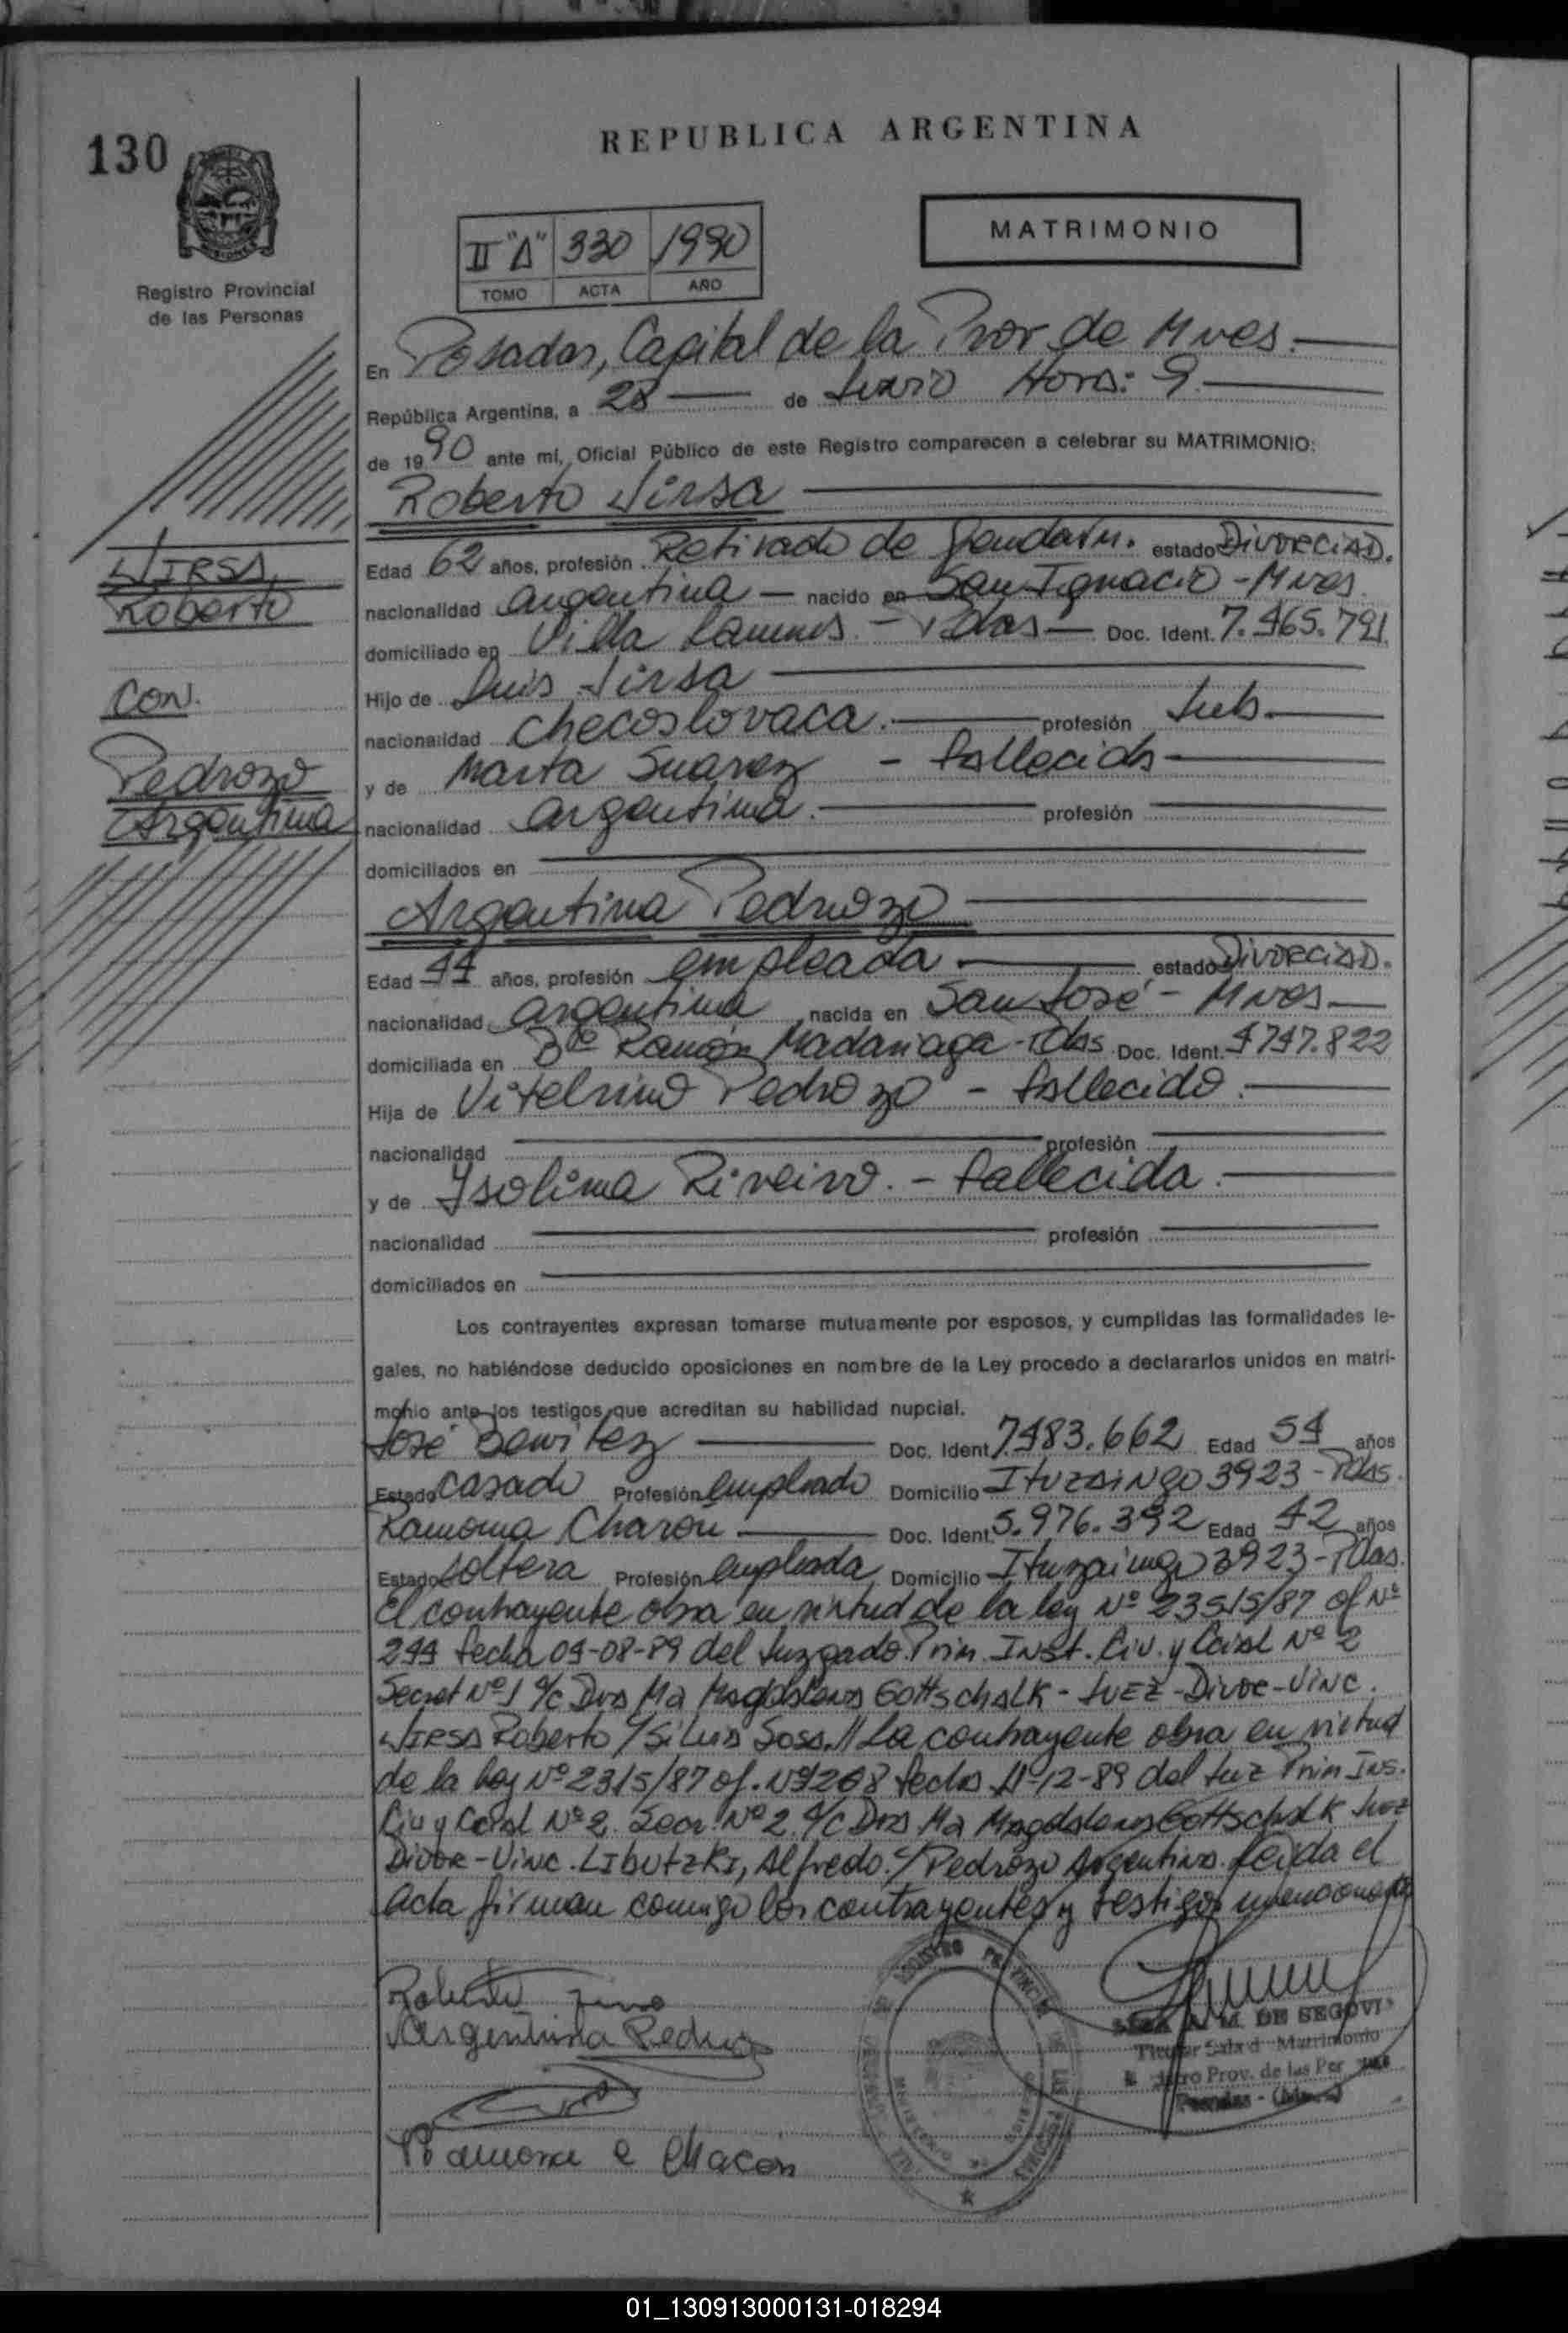 130
REPUBLICA ARGENTINA
MATRIMONIO
II "A" 330 1990
TOMO ACTA AÑO
Registro Provincial
de las Personas
En Posadas, Capital de la Prov de Mnes.
República Argentina, a 28 de Junio Hora: 9.
de 1990 ante mí, Oficial Público de este Registro comparecen a celebrar su MATRIMONIO:
Roberto Jirsa
JIRSA
Roberto
con.
Pedrozo
Argentina
Edad 62 años, profesión Retirado de Gendarm. estado DivorciAD.
nacionalidad argentina nacido en San Ignacio - Mnes.
domiciliado en Villa - Pdas Doc. Ident. 7.465.791
Hijo de Luis Jirsa
nacionalidad checoslovaca. profesión Jub.
y de Marta Suarez - fallecida
nacionalidad argentina. profesión
domiciliados en
Argentina Pedrozo
Edad 44 años, profesión empleada. estado DivorciAD.
nacionalidad argentina nacida en San José - Mnes
domiciliada en Bº Ramón Madariaga - Pdas Doc. Ident. 4747.822
Hija de Vitelrino Pedrozo - fallecido.
nacionalidad profesión
y de Ysolina Riveiro. - fallecida.
nacionalidad profesión
domiciliados en
Los contrayentes expresan tomarse mutuamente por esposos, y cumplidas las formalidades le-
gales, no habiéndose deducido oposiciones en nombre de la Ley procedo a declararlos unidos en matri-
monio ante los testigos que acreditan su habilidad nupcial.
José Benitez Doc. Ident. 7483.662 Edad 54 años
Estado casado Profesión empleado Domicilio Ituzaingo 3923 - Pdas.
Ramona Chacón Doc. Ident. 5.976.392 Edad 42 años
Estado soltera Profesión empleada Domicilio Ituzaingo 3923 - Pdas.
El contrayente obra en virtud de la ley Nº 23515/87 of Nº
244 fecha 04-08-89 del Juzgado Prim. Inst. Civ. y Ccial Nº 2
Secret Nº 1 a/c Dra Ma Magdalena Gottschalk - JUEZ - Divor - Vinc.
JIRSA Roberto c/ Silvia Sosa.// La contrayente obra en virtud
de la ley Nº 2315/87 of. Nº 1268 fecha 11-12-89 del Juz Prim Ins.
Civ y Ccial Nº 2. Secr. Nº 2 a/c Dra. Ma Magdalena Gottschalk Juez
Divor - Vinc. LIBUTZKI, Alfredo. c/ Pedrozo Argentina. leida el
acta firman conmigo los contrayentes y testigos mencionados
Roberto Jirsa
Argentina Pedrozo
Ramona e Chacón
REGISTRO PROVINCIAL DE LAS PERSONAS
MINISTERIO DE GOBIERNO
M. DE SEGOVIA
Titular Sala d Matrimonio
Registro Prov. de las Personas
Posadas - (Mnes.)
01_130913000131-018294